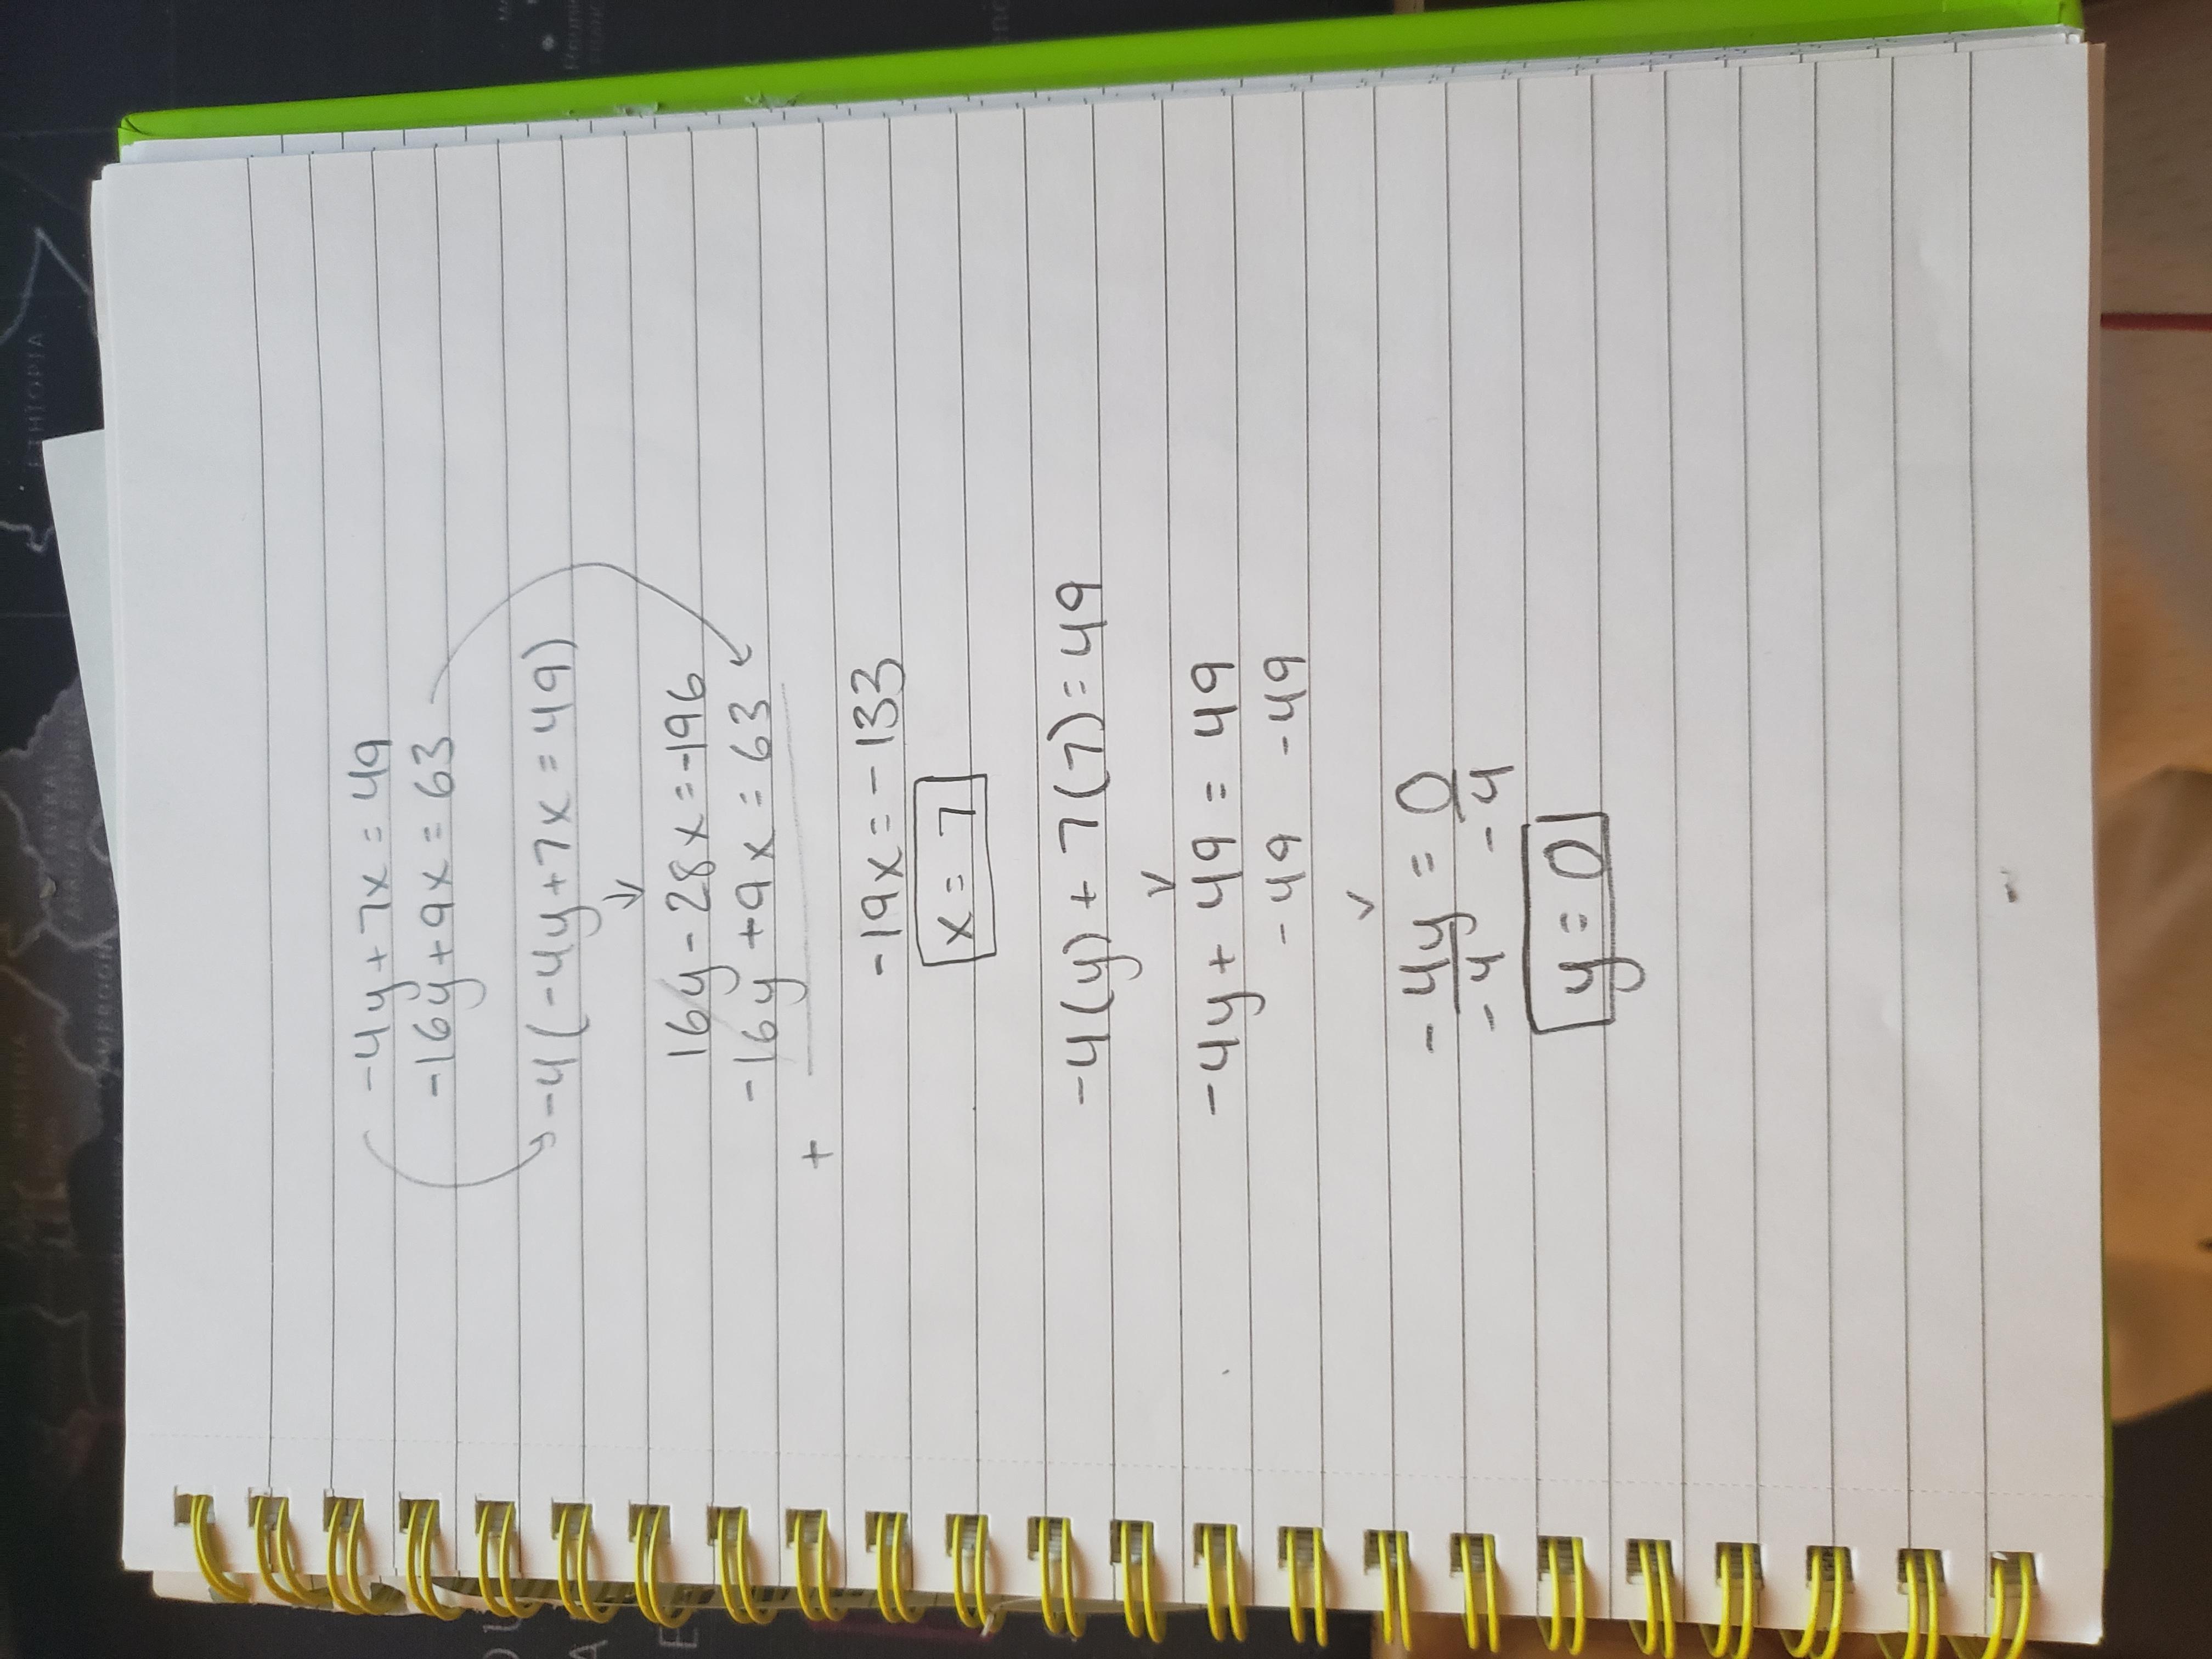 -4y + 7x = 49
-16y + 9x = 63
-4(-4y + 7x = 49)
16y - 28x = -196
-16y + 9x = 63
+
-19x = -133
x = 7
-4(y) + 7(7) = 49
-4y + 49 = 49
-49 -49
-4y = 0
-4 -4
y = 0
ETHIOPIA